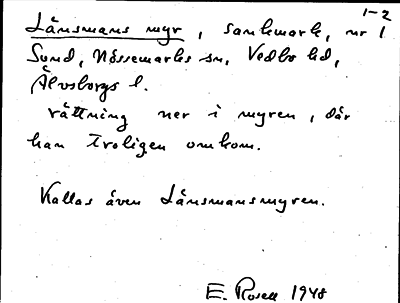 1-2
Länsmans myr, sankmark, nr 1
Sund, Nössemarks sn, Vedbo hd,
Älvsborgs l.
rättning ner i myren, där
han troligen omkom.
Kallas även Länsmansmyren.
E. Rosell 1948